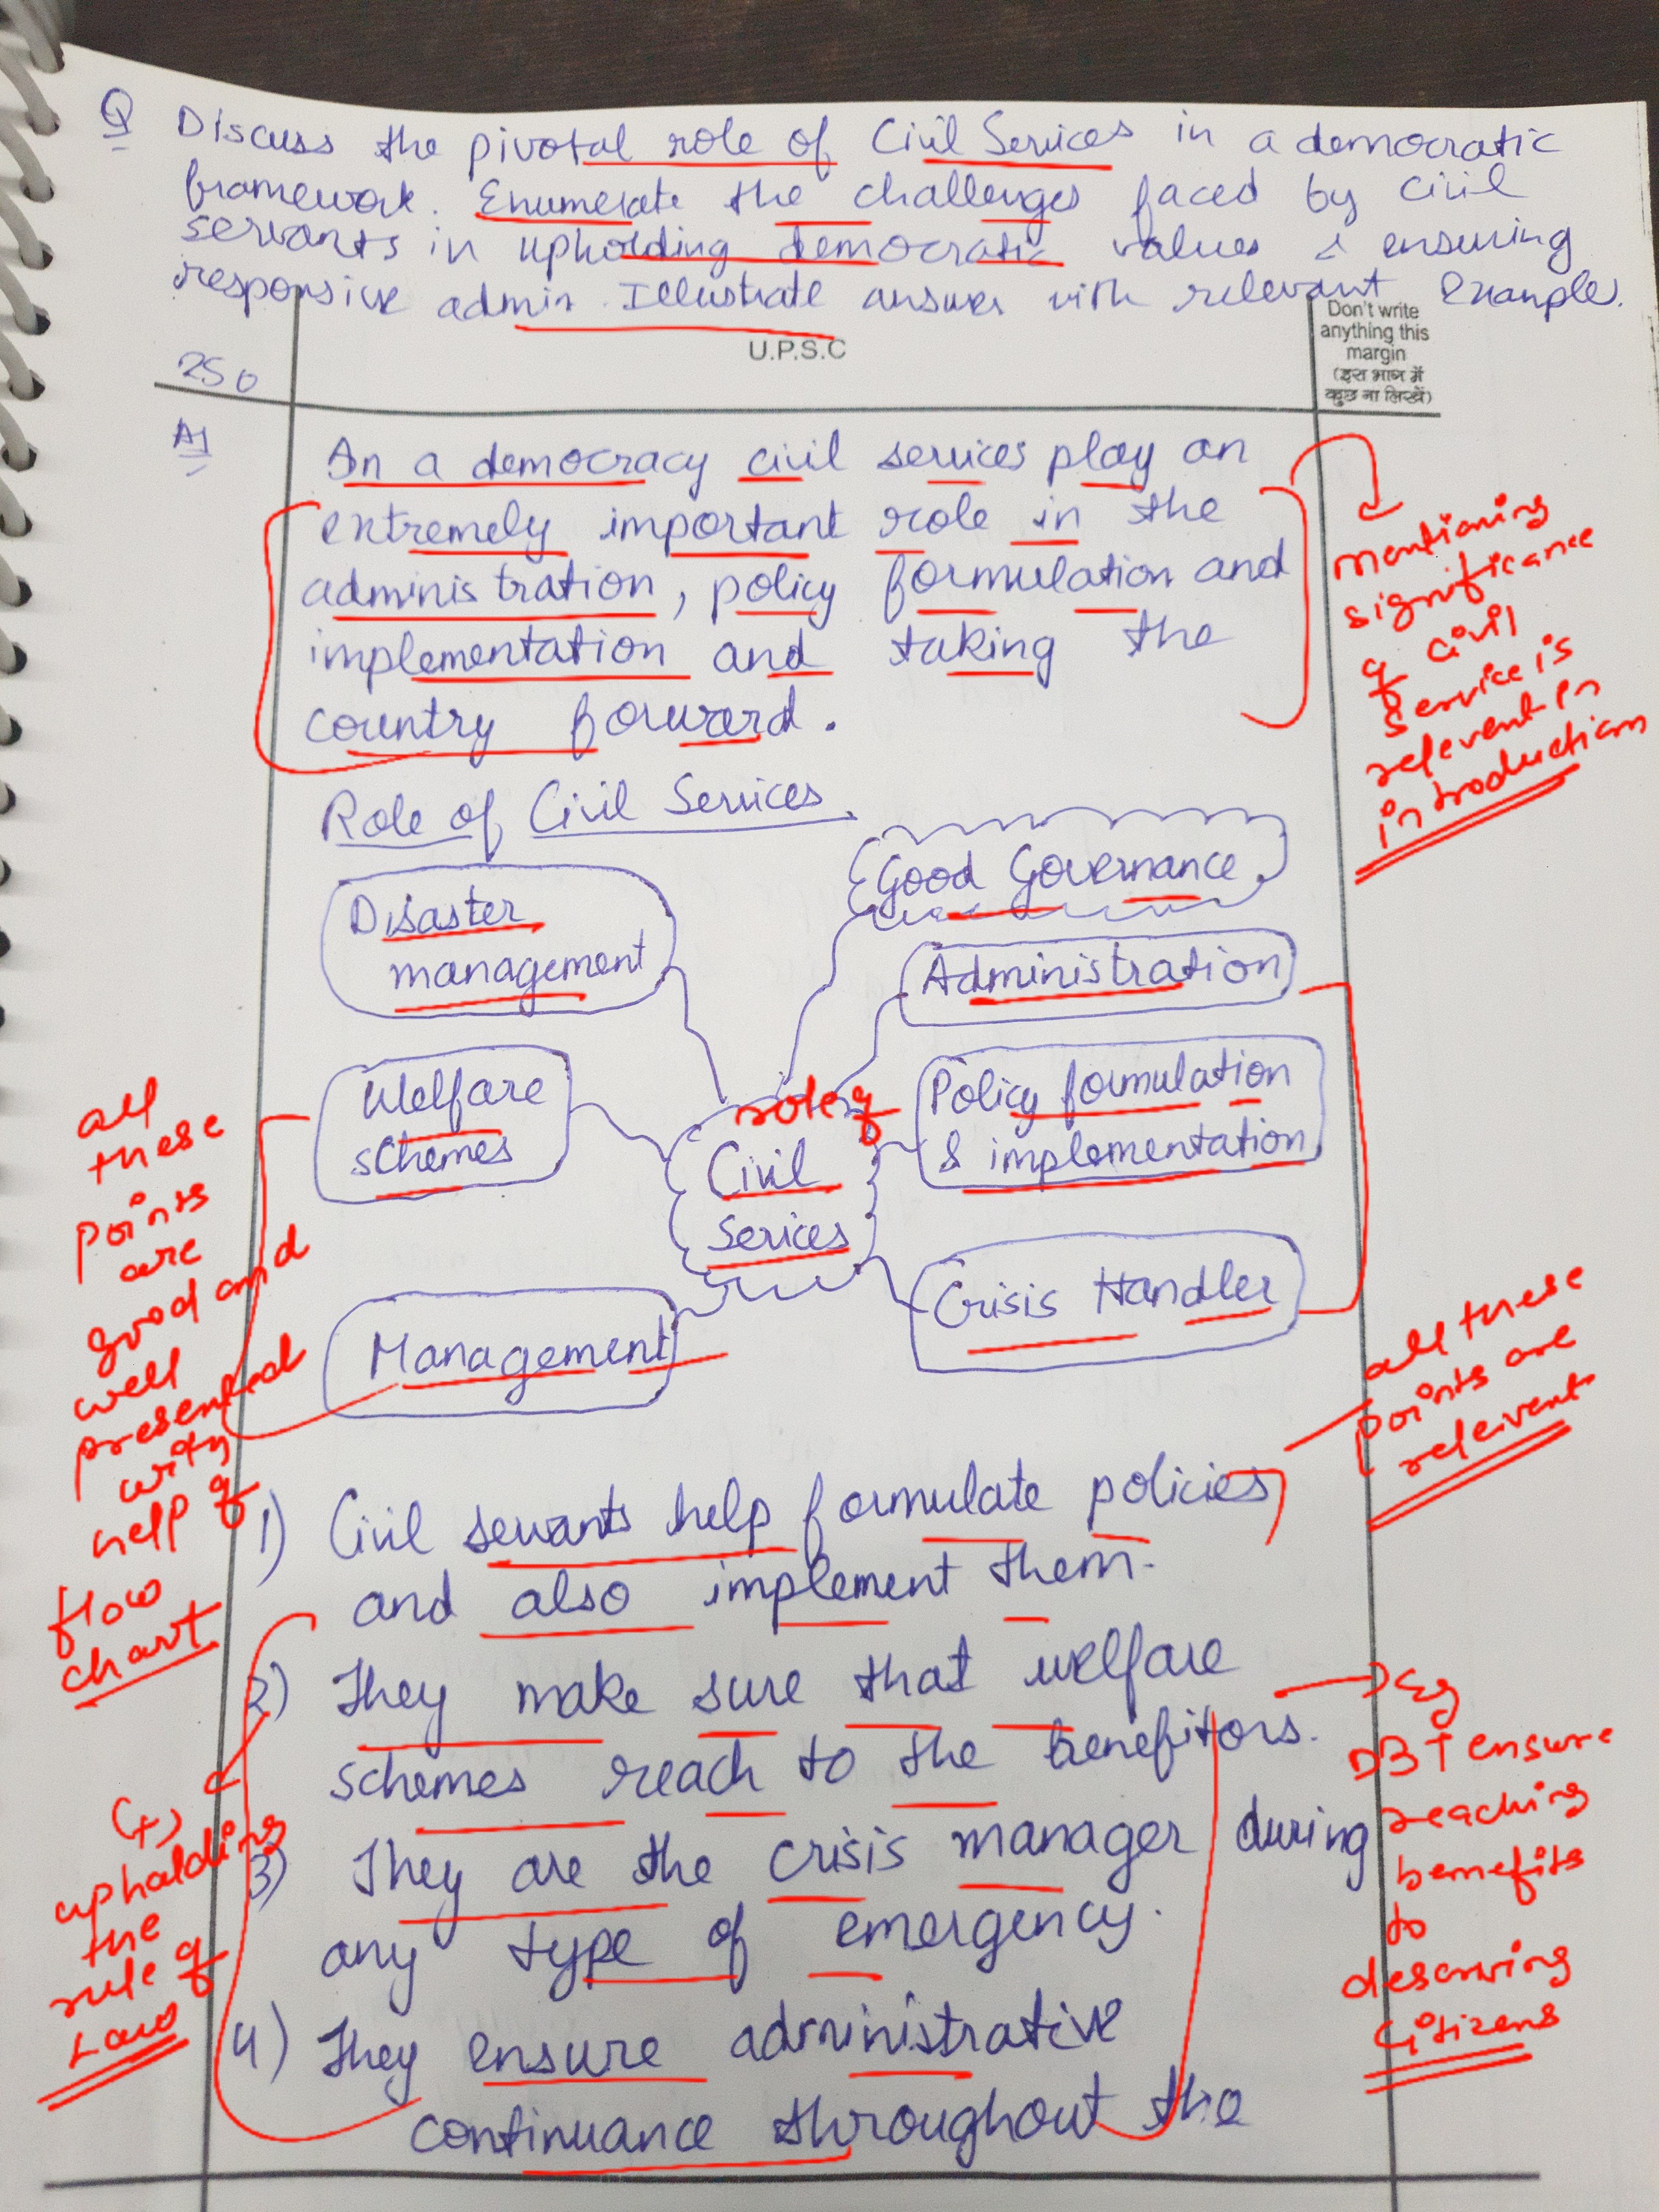 Q Discuss the pivotal role of Civil Services in a democratic
framework. Enumerate the challenges faced by civil
servants in upholding democratic values & ensuring
responsive admin. Illustrate answer with relevant Example.
U.P.S.C
Don't write
anything this
margin
(इस भाग में
कुछ ना लिखें)
250
A1
In a democracy civil services play an
extremely important role in the
administration, policy formulation and
implementation and taking the
country forward.
mentioning
significance
of civil
service is
relevent in
introduction
Role of Civil Services.
Good Governance.
Disaster
management
Administration
Welfare
schemes
Policy formulation
& implementation
role of
Civil
Serices
Management
Crisis Handler
all
these
points
are
good and
well
presented
with
help of
flow
chart
all these
points are
relevent
1) Civil servants help formulate policies
and also implement them.
2) They make sure that welfare
schemes reach to the benefitors.
Eg
DBT ensure
reaching
benefits
to
deserving
citizens
3) They are the crisis manager during
any type of emergency.
(+)
upholding
the
rule of
Law
4) They ensure administrative
continuance throughout the